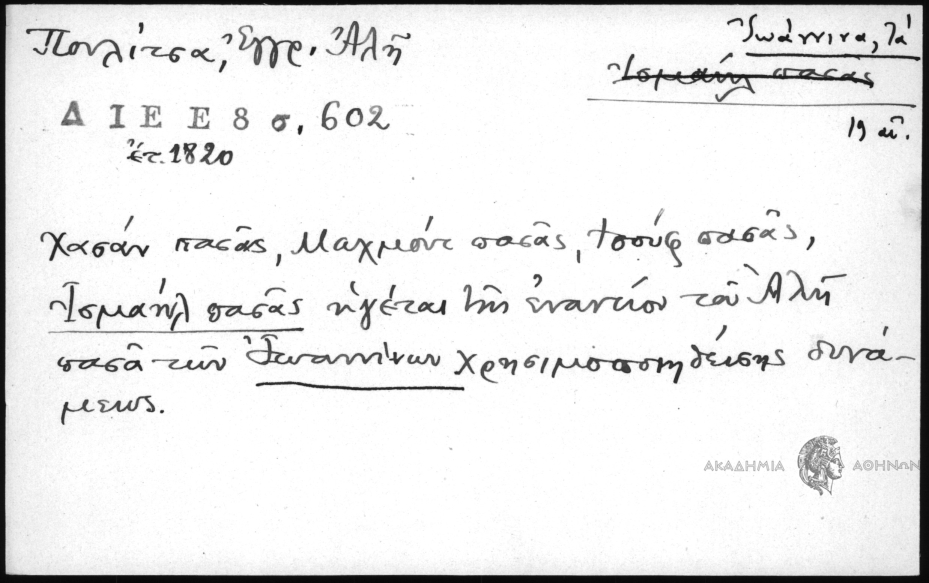 Πουλίτσα, Ἔγγρ. Ἀλῆ
Ἰωάννινα, τά
Ἰσμαήλ πασᾶς
Δ Ι Ε Ε 8 σ. 602
19 αἰ.
ἔτ. 1820
Χασάν πασᾶς, Μαχμούτ πασᾶς, Ἰσούφ πασᾶς,
Ἰσμαήλ πασᾶς ἡγέται τῆς ἐναντίον τοῦ Ἀλῆ
πασᾶ τῶν Ἰωαννίνων χρησιμοποιηθείσης δυνά-
μεως.
ΑΚΑΔΗΜΙΑ ΑΘΗΝΩΝ